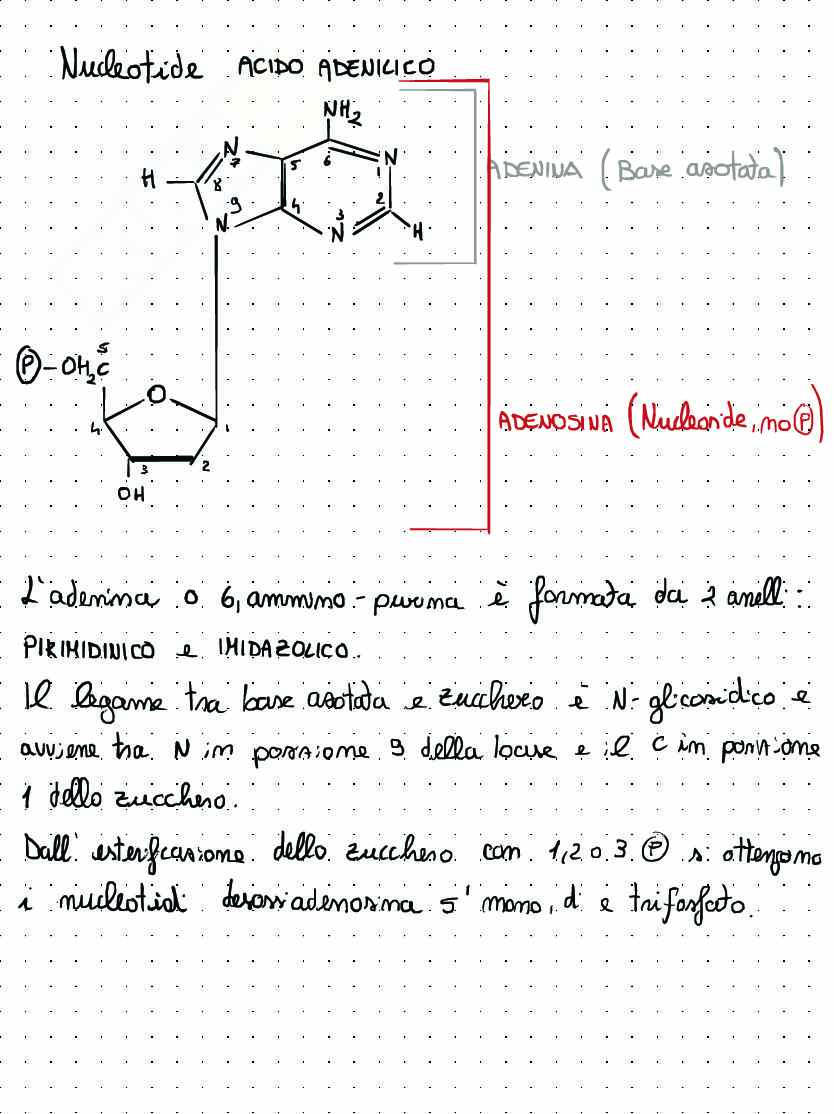 Nucleotide ACIDO ADENILICO
NH2
N N
7 5 6 1
H 8
ADENINA (Base azotata)
9 4 3 2
N N H
5
P-OH2C
O
4 1
ADENOSINA (Nucleoside, no P)
3 2
OH
L'adenina o 6, ammino-purina è formata da 2 anelli:
PIRIMIDINICO e IMIDAZOLICO.
Il legame tra base azotata e zucchero è N-glicosidico e
avviene tra N in posizione 9 della base e il C in posizione
1 dello zucchero.
Dall'esterificazione dello zucchero con 1,2 o 3 P si ottengono
i nucleotidi desossiadenosina 5' mono, di e trifosfato.